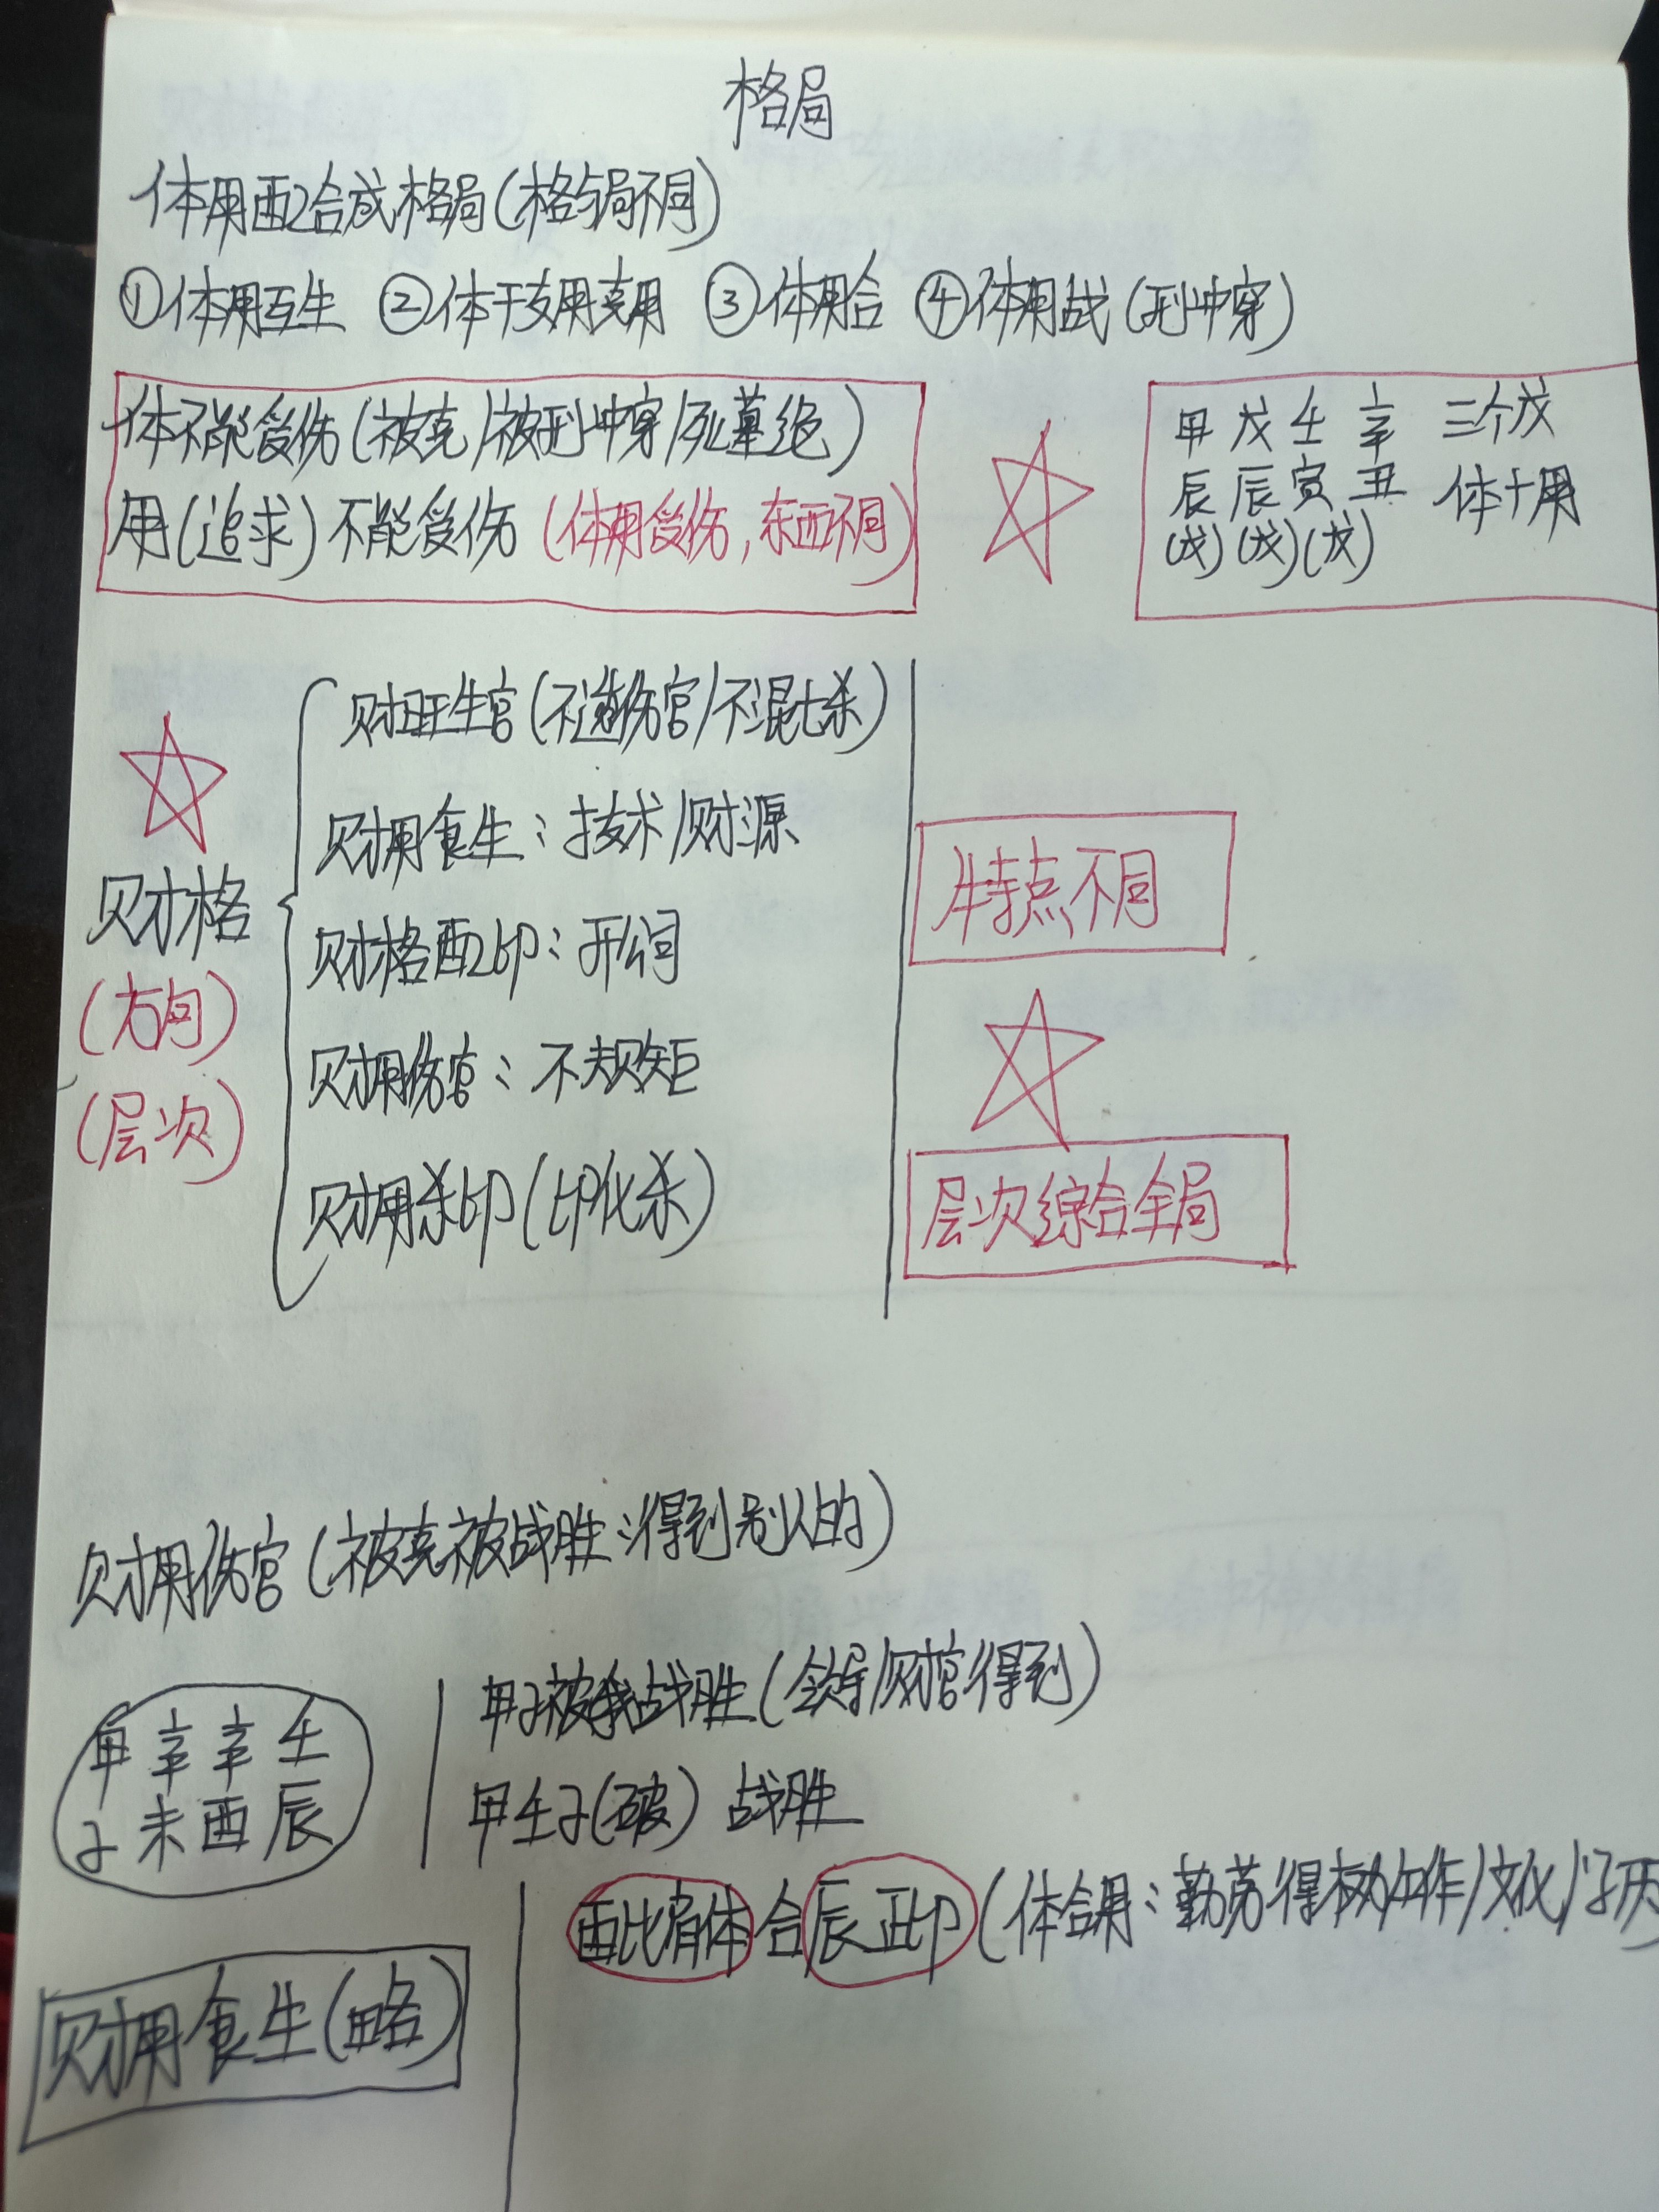 格局
体用配合成格局(格与局不同)
①体用互生 ②体干支用支用 ③体用合 ④体用战(刑冲穿)
体不能受伤(被克/被刑冲穿/死墓绝)
用(追求)不能受伤(体用受伤,东西不同)
甲戊壬辛 三个戊
辰辰寅丑 体十用
(戊)(戊)(戊)
财格
(方向)
(层次)
财旺生官(不透伤官/不混七杀)
财用食生:技术/财源
财格配印:开公司
财用伤官:不规矩
财用杀印(印化杀)
特点不同
层次综合全局
财用伤官(被克被战胜:得到别人的)
甲辛辛壬
子未酉辰
甲子被我战胜(领导/财官得到)
甲生子(破)战胜
酉比肩体合辰正印(体合用:勤劳得权力/工作/文化/学历
财用食生(略)